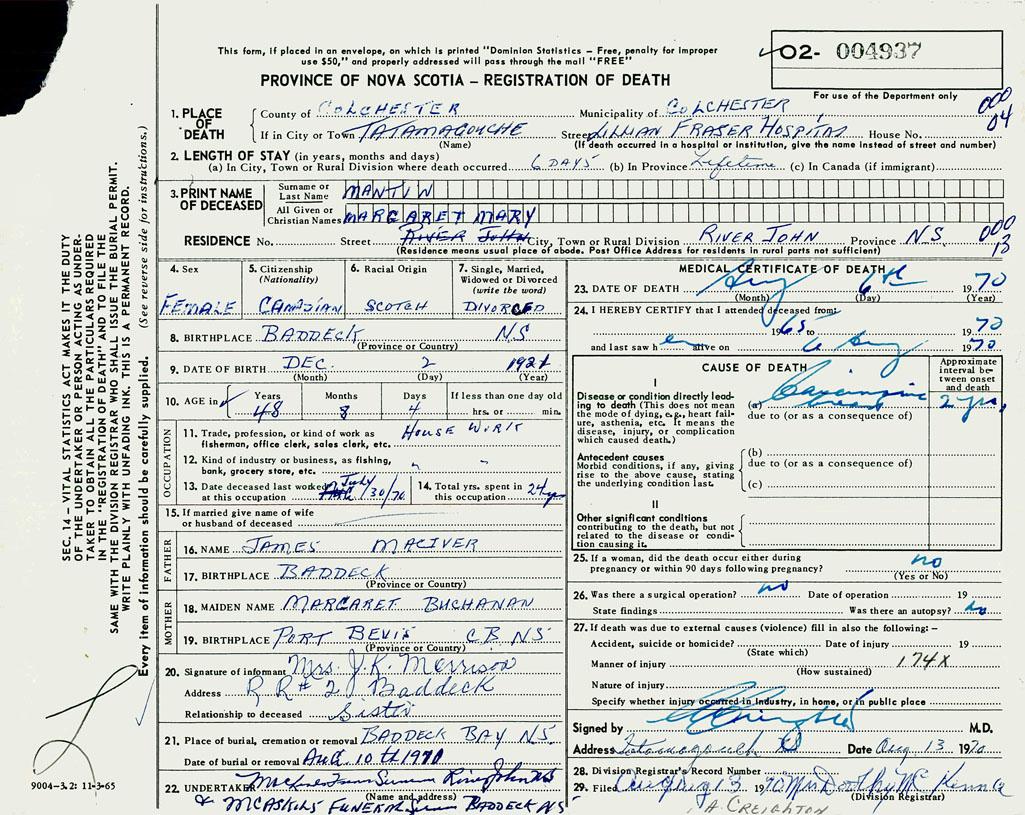 This form, if placed in an envelope, on which is printed "Dominion Statistics – Free, penalty for improper
use $50," and properly addressed will pass through the mail "FREE"
PROVINCE OF NOVA SCOTIA – REGISTRATION OF DEATH
02- 004937
For use of the Department only
000
04
1. PLACE OF DEATH
County of COLCHESTER Municipality of COLCHESTER
If in City or Town TATAMAGOUCHE Street LILLIAN FRASER HOSPITAL House No.
(Name) (If death occurred in a hospital or institution, give the name instead of street and number)
2. LENGTH OF STAY (in years, months and days)
(a) In City, Town or Rural Division where death occurred 6 DAYS (b) In Province Lifetime (c) In Canada (if immigrant)
3. PRINT NAME OF DECEASED
Surname or Last Name MANTIN
All Given or Christian Names MARGARET MARY
RESIDENCE No. Street RIVER JOHN City, Town or Rural Division RIVER JOHN Province NS
(Residence means usual place of abode. Post Office Address for residents in rural parts not sufficient)
000
13
4. Sex FEMALE
5. Citizenship (Nationality) CANADIAN
6. Racial Origin SCOTCH
7. Single, Married, Widowed or Divorced (write the word) DIVORCED
8. BIRTHPLACE BADDECK NS
(Province or Country)
9. DATE OF BIRTH DEC. 2 1921
(Month) (Day) (Year)
10. AGE in Years 48 Months 8 Days 4 If less than one day old hrs. or min.
OCCUPATION
11. Trade, profession, or kind of work as fisherman, office clerk, sales clerk, etc. HOUSE WORK
12. Kind of industry or business, as fishing, bank, grocery store, etc. " "
13. Date deceased last worked at this occupation July /30/70
14. Total yrs. spent in this occupation 24 yrs
15. If married give name of wife or husband of deceased
FATHER
16. NAME JAMES MACIVER
17. BIRTHPLACE BADDECK
(Province or Country)
MOTHER
18. MAIDEN NAME MARGARET BUCHANAN
19. BIRTHPLACE PORT BEVIS CB NS
(Province or Country)
20. Signature of informant Mrs. J.K. Morrison
Address RR#2 Baddeck
Relationship to deceased Sister
21. Place of burial, cremation or removal BADDECK BAY NS.
Date of burial or removal Aug 10th 1970
22. UNDERTAKER River John NS
(Name and address)
& MCASKILL FUNERAL BADDECK NS
MEDICAL CERTIFICATE OF DEATH
23. DATE OF DEATH Aug 6th 1970
(Month) (Day) (Year)
24. I HEREBY CERTIFY that I attended deceased from:
1965 to 1970
and last saw h er alive on 6 Aug 1970
CAUSE OF DEATH
Approximate interval between onset and death
I
Disease or condition directly leading to death (This does not mean the mode of dying, e.g., heart failure, asthenia, etc. It means the disease, injury, or complication which caused death.)
(a) Carcinoma breast 2 yrs.
due to (or as a consequence of)
Antecedent causes
Morbid conditions, if any, giving rise to the above cause, stating the underlying condition last.
(b)
due to (or as a consequence of)
(c)
II
Other significant conditions
contributing to the death, but not related to the disease or condition causing it.
25. If a woman, did the death occur either during pregnancy or within 90 days following pregnancy? no
(Yes or No)
26. Was there a surgical operation? no Date of operation 19
State findings Was there an autopsy? no
27. If death was due to external causes (violence) fill in also the following:–
Accident, suicide or homicide? Date of injury 19
(State which)
Manner of injury 174X
(How sustained)
Nature of injury
Specify whether injury occurred in industry, in home, or in public place
Signed by M.D.
Address Tatamagouche Date Aug 13 1970
28. Division Registrar's Record Number
29. Filed Aug 13 1970 Mrs Dorothy McKenna
(Division Registrar)
A. CREIGHTON
SEC. 14 – VITAL STATISTICS ACT MAKES IT THE DUTY
OF THE UNDERTAKER OR PERSON ACTING AS UNDER-
TAKER TO OBTAIN ALL THE PARTICULARS REQUIRED
IN THE "REGISTRATION OF DEATH" AND TO FILE THE
SAME WITH THE DIVISION REGISTRAR WHO SHALL ISSUE THE BURIAL PERMIT.
WRITE PLAINLY WITH UNFADING INK. THIS IS A PERMANENT RECORD.
Every item of information should be carefully supplied. (See reverse side for instructions.)
9004-3.2: 11-3-65